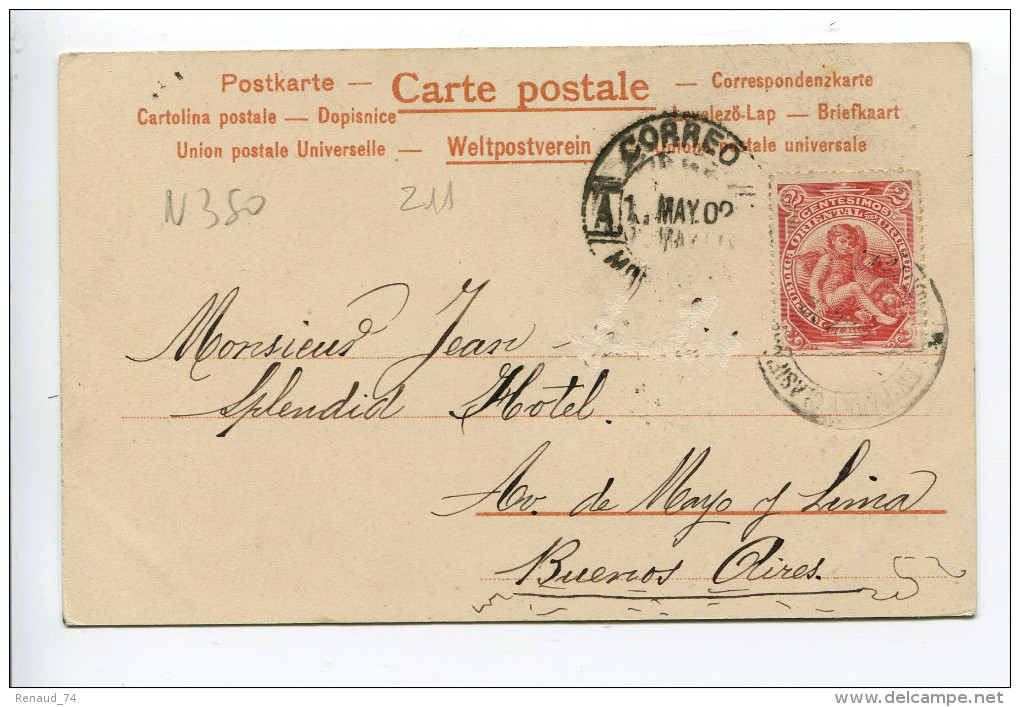 Postkarte — Carte postale — Correspondenzkarte
Cartolina postale — Dopisnice Levelező-Lap — Briefkaart
Union postale Universelle — Weltpostverein — Unione postale universale
N 350 211
CORREO
A
1. MAY.02
2 CENTESIMOS 2
REPUBLICA ORIENTAL DEL URUGUAY
Monsieur Jean
Splendid Hotel.
Av. de Mayo y Lima
Buenos Aires.
52
Renaud_74
delcampe.net